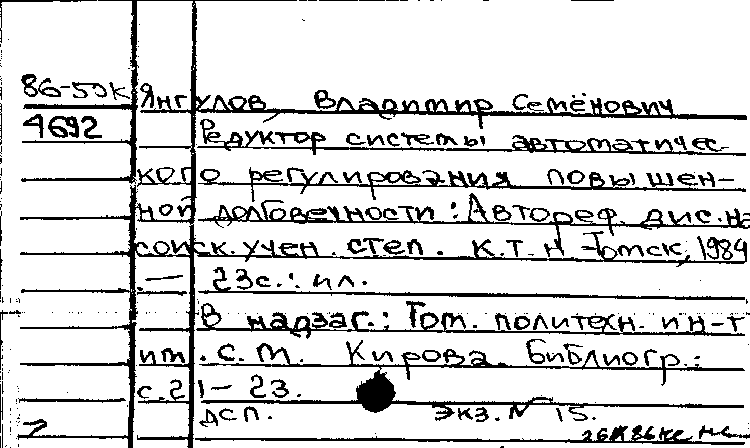 86-5 Янгулов, Владимир Семёнович
4692 Редуктор системы автоматичес-
кого регулирования повышен-
ной долговечности : Автореф. дис. на
соиск. учен. степ. к.т.н. Томск, 1984
. — 23с. : ил.
В надзаг.: Том. политехн. ин-т
им. С. М. Кирова. Библиогр.:
с. 21 – 23.
ДСП. Экз. № 15.